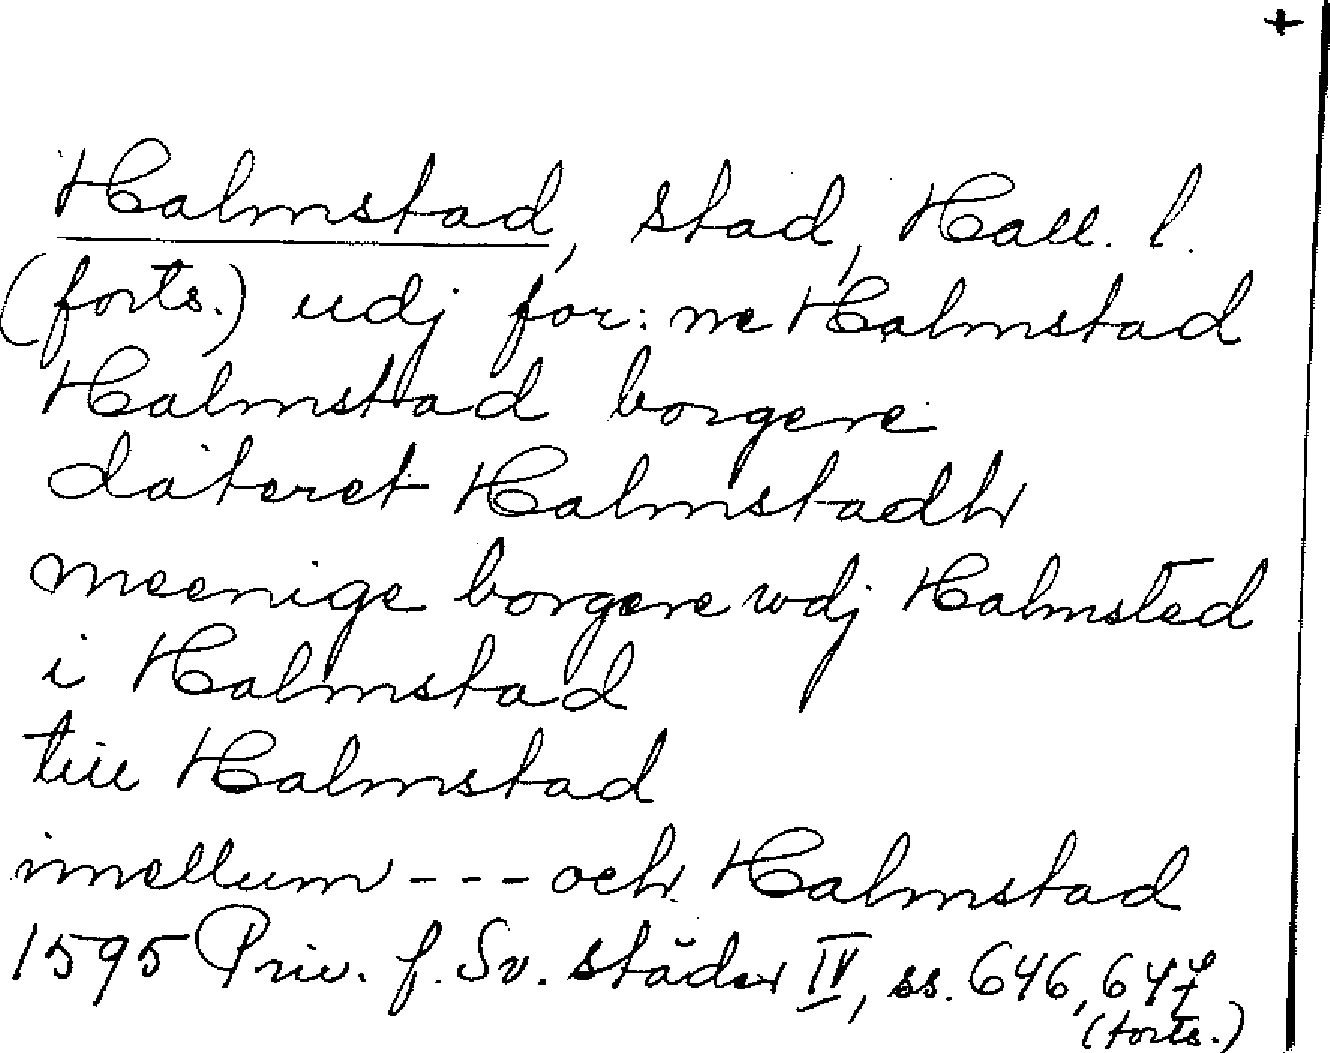 +
Halmstad, stad, Hall. l.
(forts.) udj for: ne Halmstad
Halmstad borgere
dateret Halmstadh
meenige borgere wdj Halmsted
i Halmstad
till Halmstad
imellum --- och Halmstad
1595 Priv. f. Sv. städer IV, ss. 646, 647
(forts.)